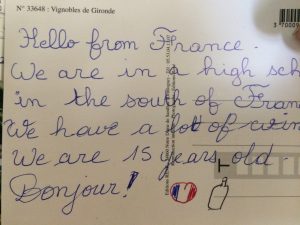 N° 33648 : Vignobles de Gironde
Hello from France.
We are in a high sch
in the south of Fran
We have a lot of win
We are 15 years old.
Bonjour!